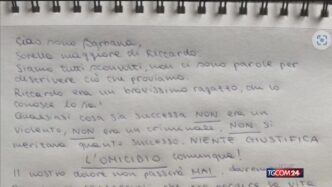 Ciao sono Barbara,
sorella maggiore di Riccardo.
Siamo tutti sconvolti, non ci sono parole per
descrivere ciò che proviamo.
Riccardo era un bravissimo ragazzo, chi lo
conosce lo sa!
Qualsiasi cosa sia successa NON era un
violento, NON era un criminale, NON si
meritava quanto successo. NIENTE GIUSTIFICA
L'OMICIDIO comunque!
Il nostro dolore non passerà MAI,
TGCOM24